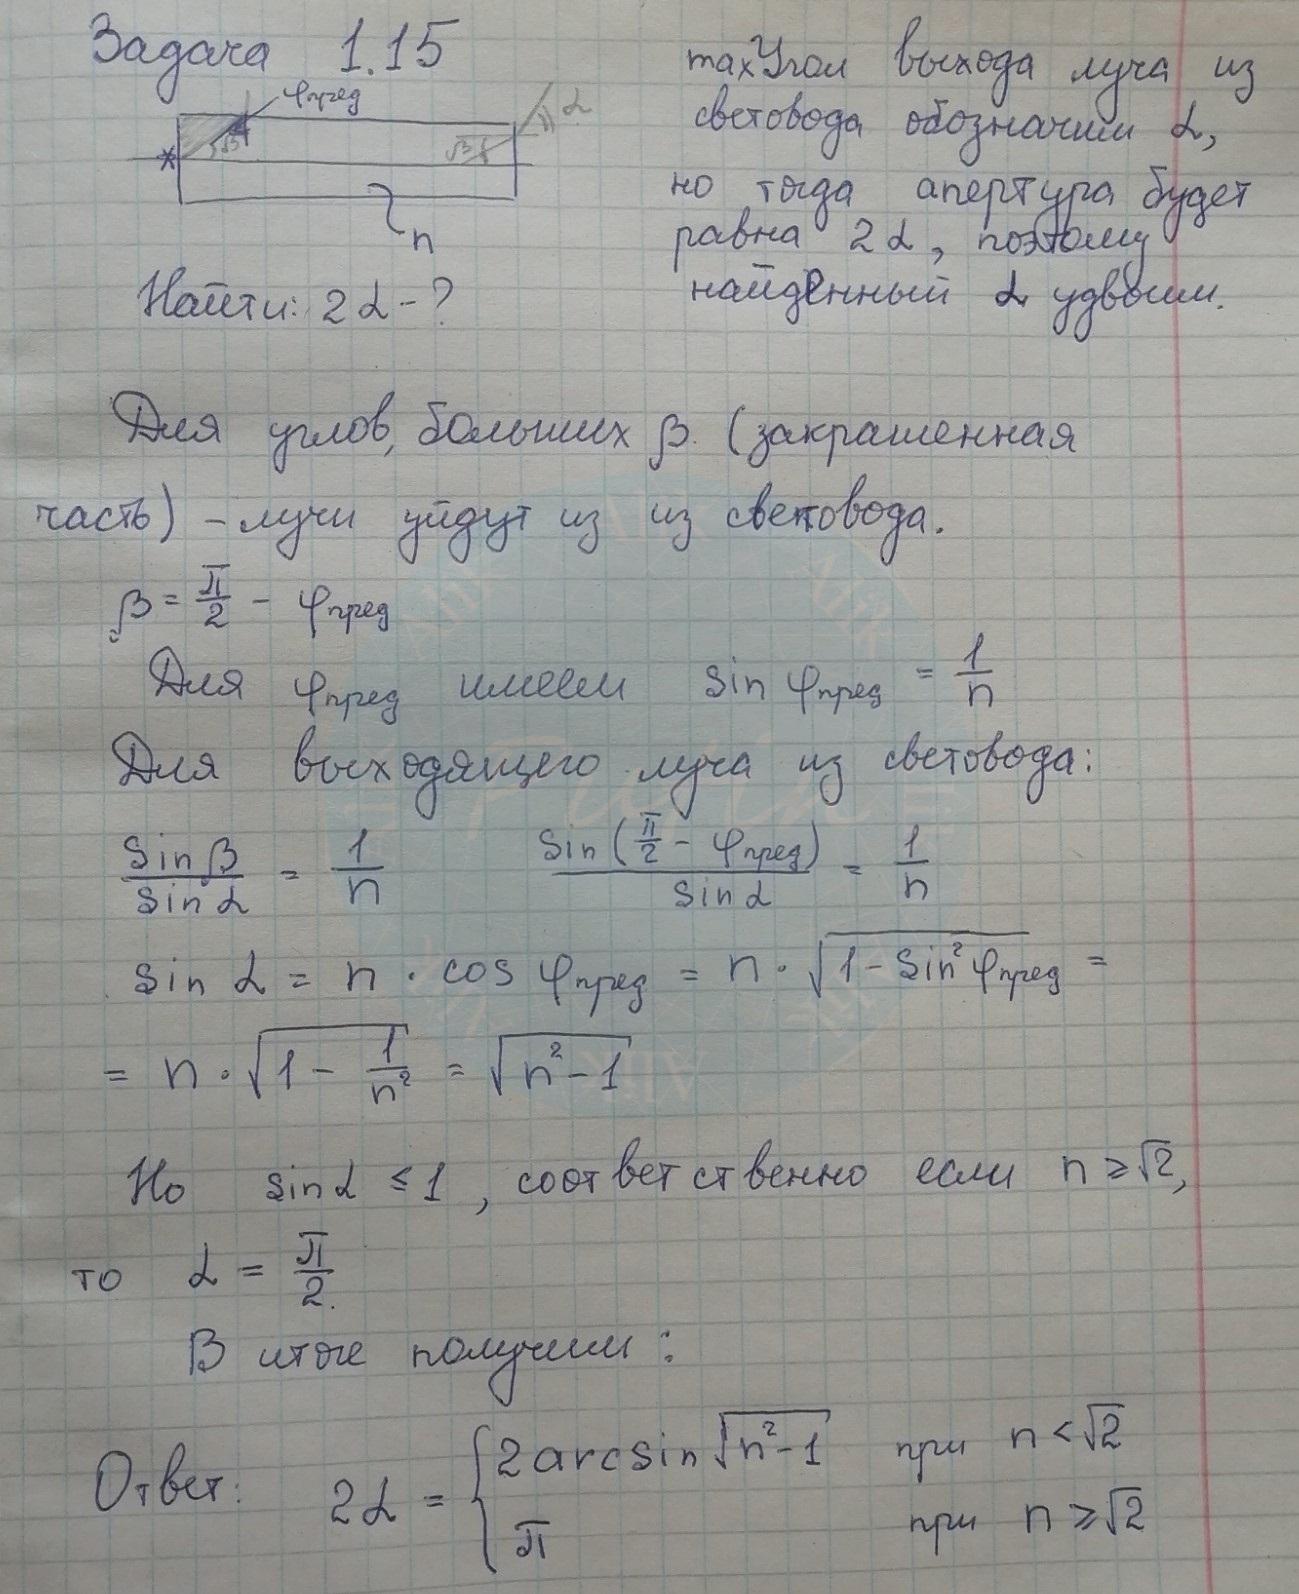 Задача 1.15
φпред
β
β
α
n
Найти: 2α - ?
max Угол выхода луча из
световода обозначим α,
но тогда апертура будет
равна 2α, поэтому
найденный α удвоим.
Для углов, больших β (закрашенная
часть) - лучи уйдут из из световода.
β = π/2 - φпред
Для φпред имеем sin φпред = 1/n
Для выходящего луча из световода:
sin β / sin α = 1/n    sin(π/2 - φпред) / sin α = 1/n
sin α = n · cos φпред = n · √(1 - sin² φпред) =
= n · √(1 - 1/n²) = √(n² - 1)
Но sin α ≤ 1, соответственно если n ≥ √2,
то α = π/2.
В итоге получим:
Ответ: 2α = { 2 arcsin √(n² - 1) при n < √2
π при n ≥ √2
Alik
Alik
Alik
Alik